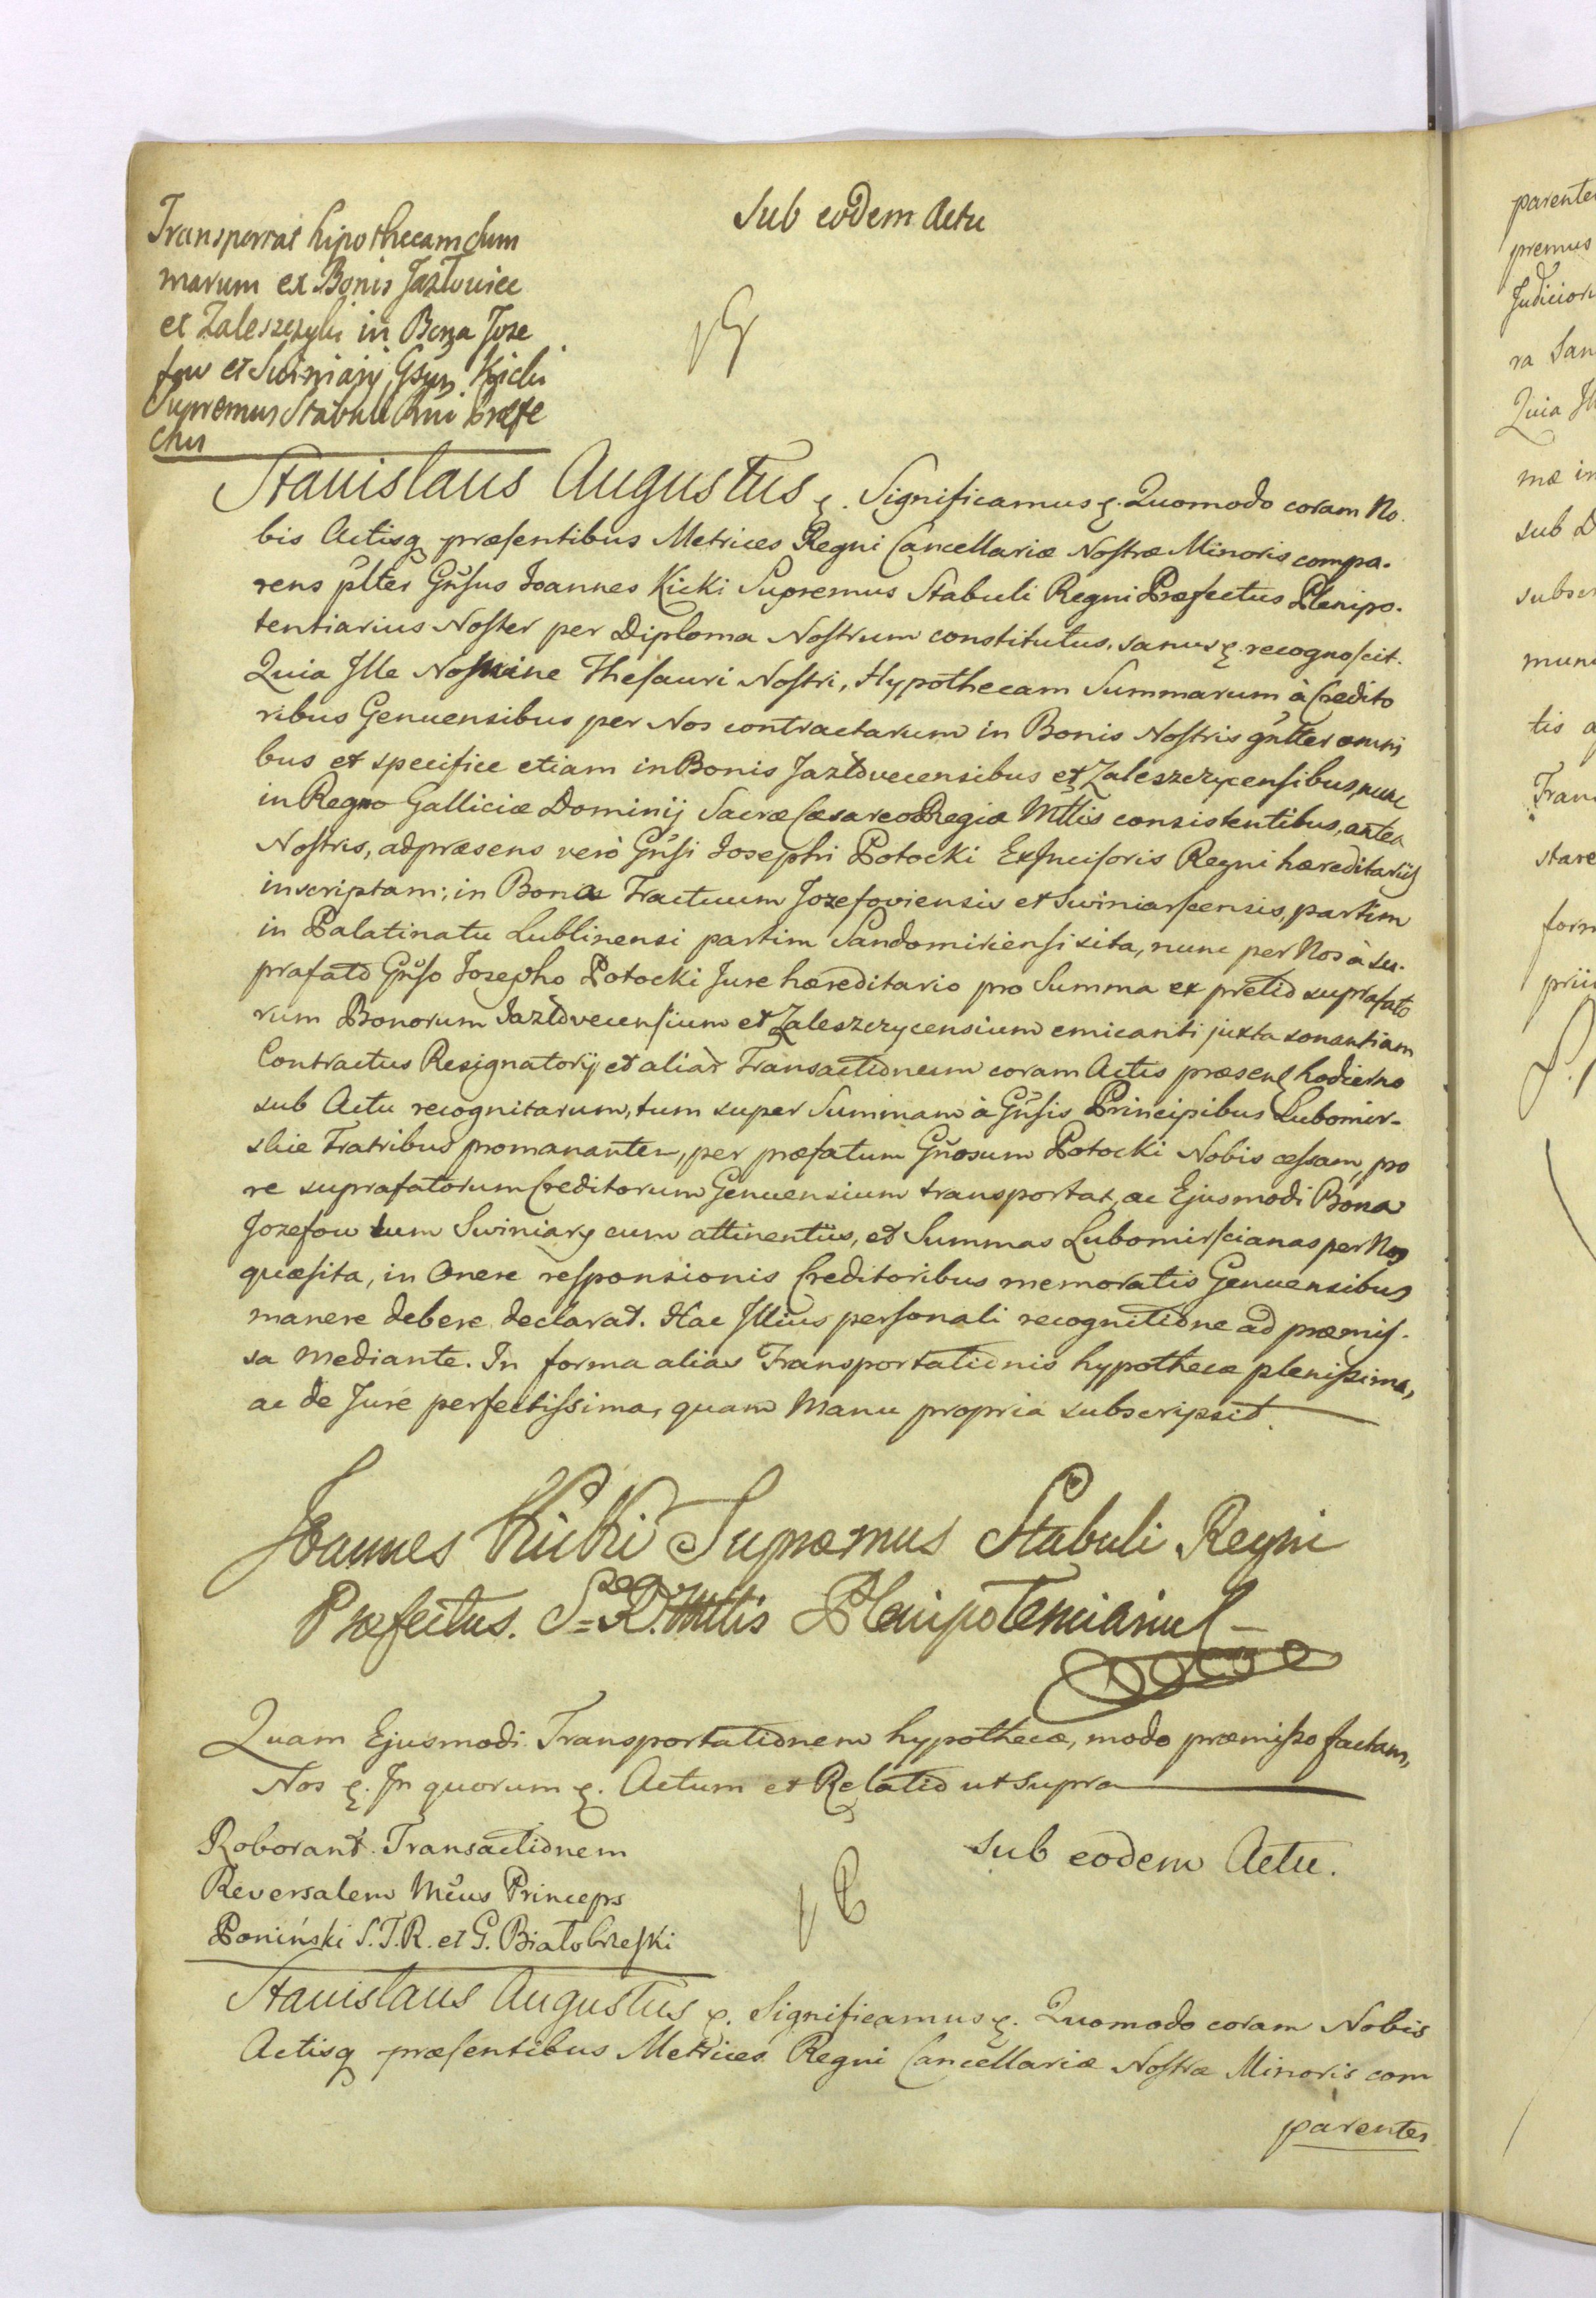 Sub eodem Actu
Transportat hipothecam Sum
marum ex Bonis Jazłowiec
et Zaleszczyki in Bona Joze
fow et Swiniary Gsus Kicki
Supremus Stabuli Rni Præfe
ctus
Stanislaus Augustus &. Significamus &. Quomodo coram No-
bis Actisq præsentibus Metrices Regni Cancellariæ Nostræ Minoris compa-
rens plter Gnsus Joannes Kicki Supremus Stabuli Regni Præfectus Plenipo-
tentiarius Noster per Diploma Nostrum constitutus, sanus &. recognoscit.
Quia Ille Nomine Thesauri Nostri, Hypothecam Summarum à Credito
ribus Genuensibus per Nos contractarum in Bonis Nostris gnlter omni
bus et specifice etiam in Bonis Jazłovecensibus et Zaleszczycensibus, nunc
in Regno Galliciæ Dominij Sacræ Cæsareo Regiæ Mttis consistentibus, antea
Nostris, ad præsens verò Gnsi Josephi Potocki ExIncisoris Regni hæreditariis
inscriptam; in Bona Tractuum Jozefoviensis et Swiniarscensis, partim
in Palatinatu Lublinensi partim Sandomiriensi sita, nunc per Nos à su-
præfato Gnso Josepho Potocki Jure hæreditario pro Summa ex pretio supræfato
rum Bonorum Jazłovecensium et Zaleszczycensium emicanti juxta sonantiam
Contractus Resignatorij et aliar Transactionum coram Actis præsen hodierno
sub Actu recognitarum, tum super Summam à Gnsis Principibus Lubomir-
skie Fratribus promananter, per præfatum Gnosum Potocki Nobis cessam, pro
re supræfatorum Creditorum Genuensium transportat, ac Ejusmodi Bona
Jozefow tum Swiniary cum attinentiis, et Summas Lubomirscianas per Nos
quæsita, in Onere responsionis Creditoribus memoratis Genuensibus
manere debere declarat. Hac Illius personali recognitione ad præmis-
sa mediante. In forma alias Transportationis hypothecæ plenissima,
ac de Jure perfectissima, quam Manu propria subscripsit.
Joannes Kicki Supræmus Stabuli Regni
Præfectus. S. R. Mttis Plenipotenciarius
Quam Ejusmodi Transportationem hypothecæ, modo præmisso factam,
Nos &. In quorum &. Actum et Relatio ut supra
Sub eodem Actu.
Roborant Transactionem
Reversalem Mcus Princeps
Poniński S.T.R. et G. Białobrzeski
Stanislaus Augustus &. Significamus &. Quomodo coram Nobis
Actisq præsentibus Metrices Regni Cancellariæ Nostræ Minoris com
parentes
premus
ra San
mæ in
sub D
subscr
mun
tis a
Tran
stare
form